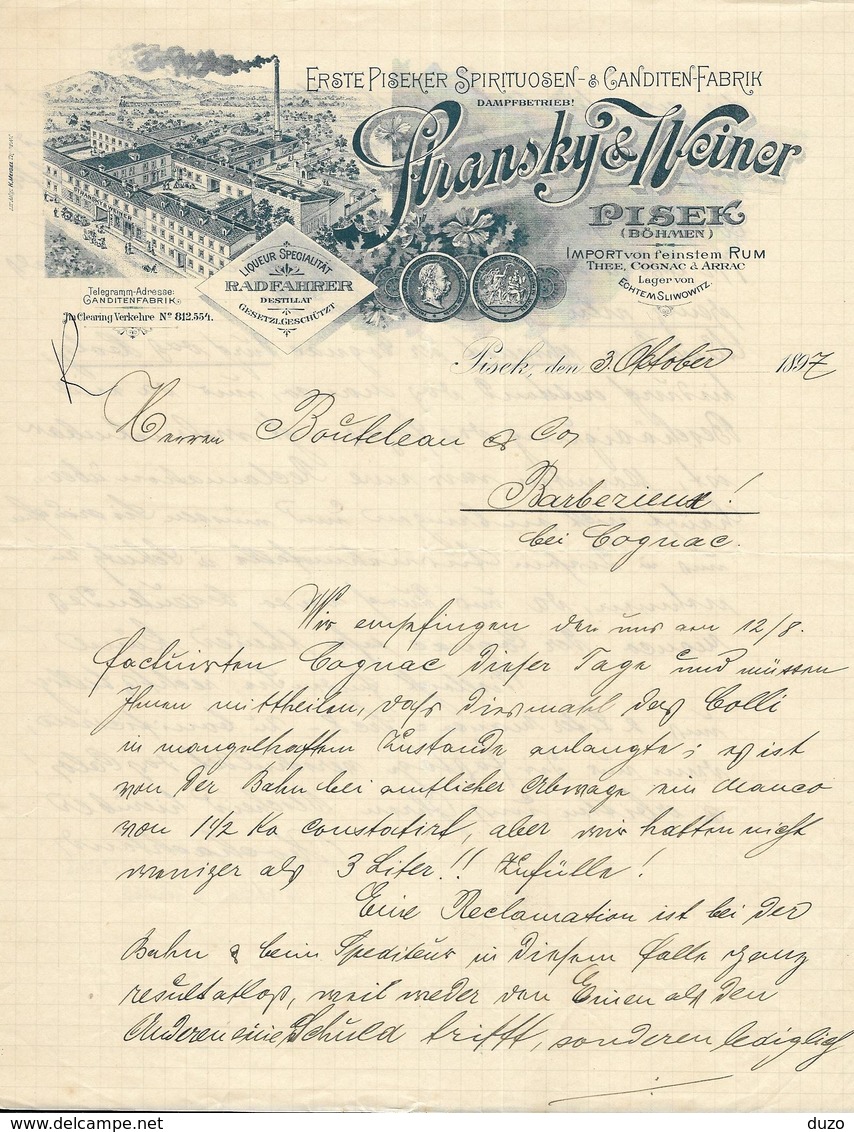 ERSTE PISEKER SPIRITUOSEN- & CANDITEN-FABRIK
DAMPFBETRIEB!
Stransky & Weiner
PISEK
(BÖHMEN)
IMPORT von feinstem RUM
THEE, COGNAC & ARRAC
Lager von
ECHTEM SLIWOWITZ.
LIQUEUR SPECIALITÄT
RADFAHRER
DESTILLAT
GESETZL. GESCHÜTZT
Telegramm-Adresse:
CANDITENFABRIK.
Im Clearing Verkehre Nº 812.554.
Pisek, den 3. Oktober 1897
Herren Bouteleau & Co,
Barbezieux!
bei Cognac.
Wir empfingen den uns am 12/8.
facturirten Cognac dieser Tage und müssen
Ihnen mittheilen, daß diesmahl das Colli
in mangelhaftem Zustande anlangte; es ist
von der Bahn bei amtlicher Abwage ein Manco
von 1 1/2 Ko constatirt, aber wir hatten nicht
weniger als 3 Liter!! Zufülle!
Eine Reclamation ist bei der
Bahn & beim Spediteur in diesem Falle ganz
resultatlos, weil weder den Einen als den
Anderen eine Schuld trifft, sonderen lediglich
www.delcampe.net
duzo